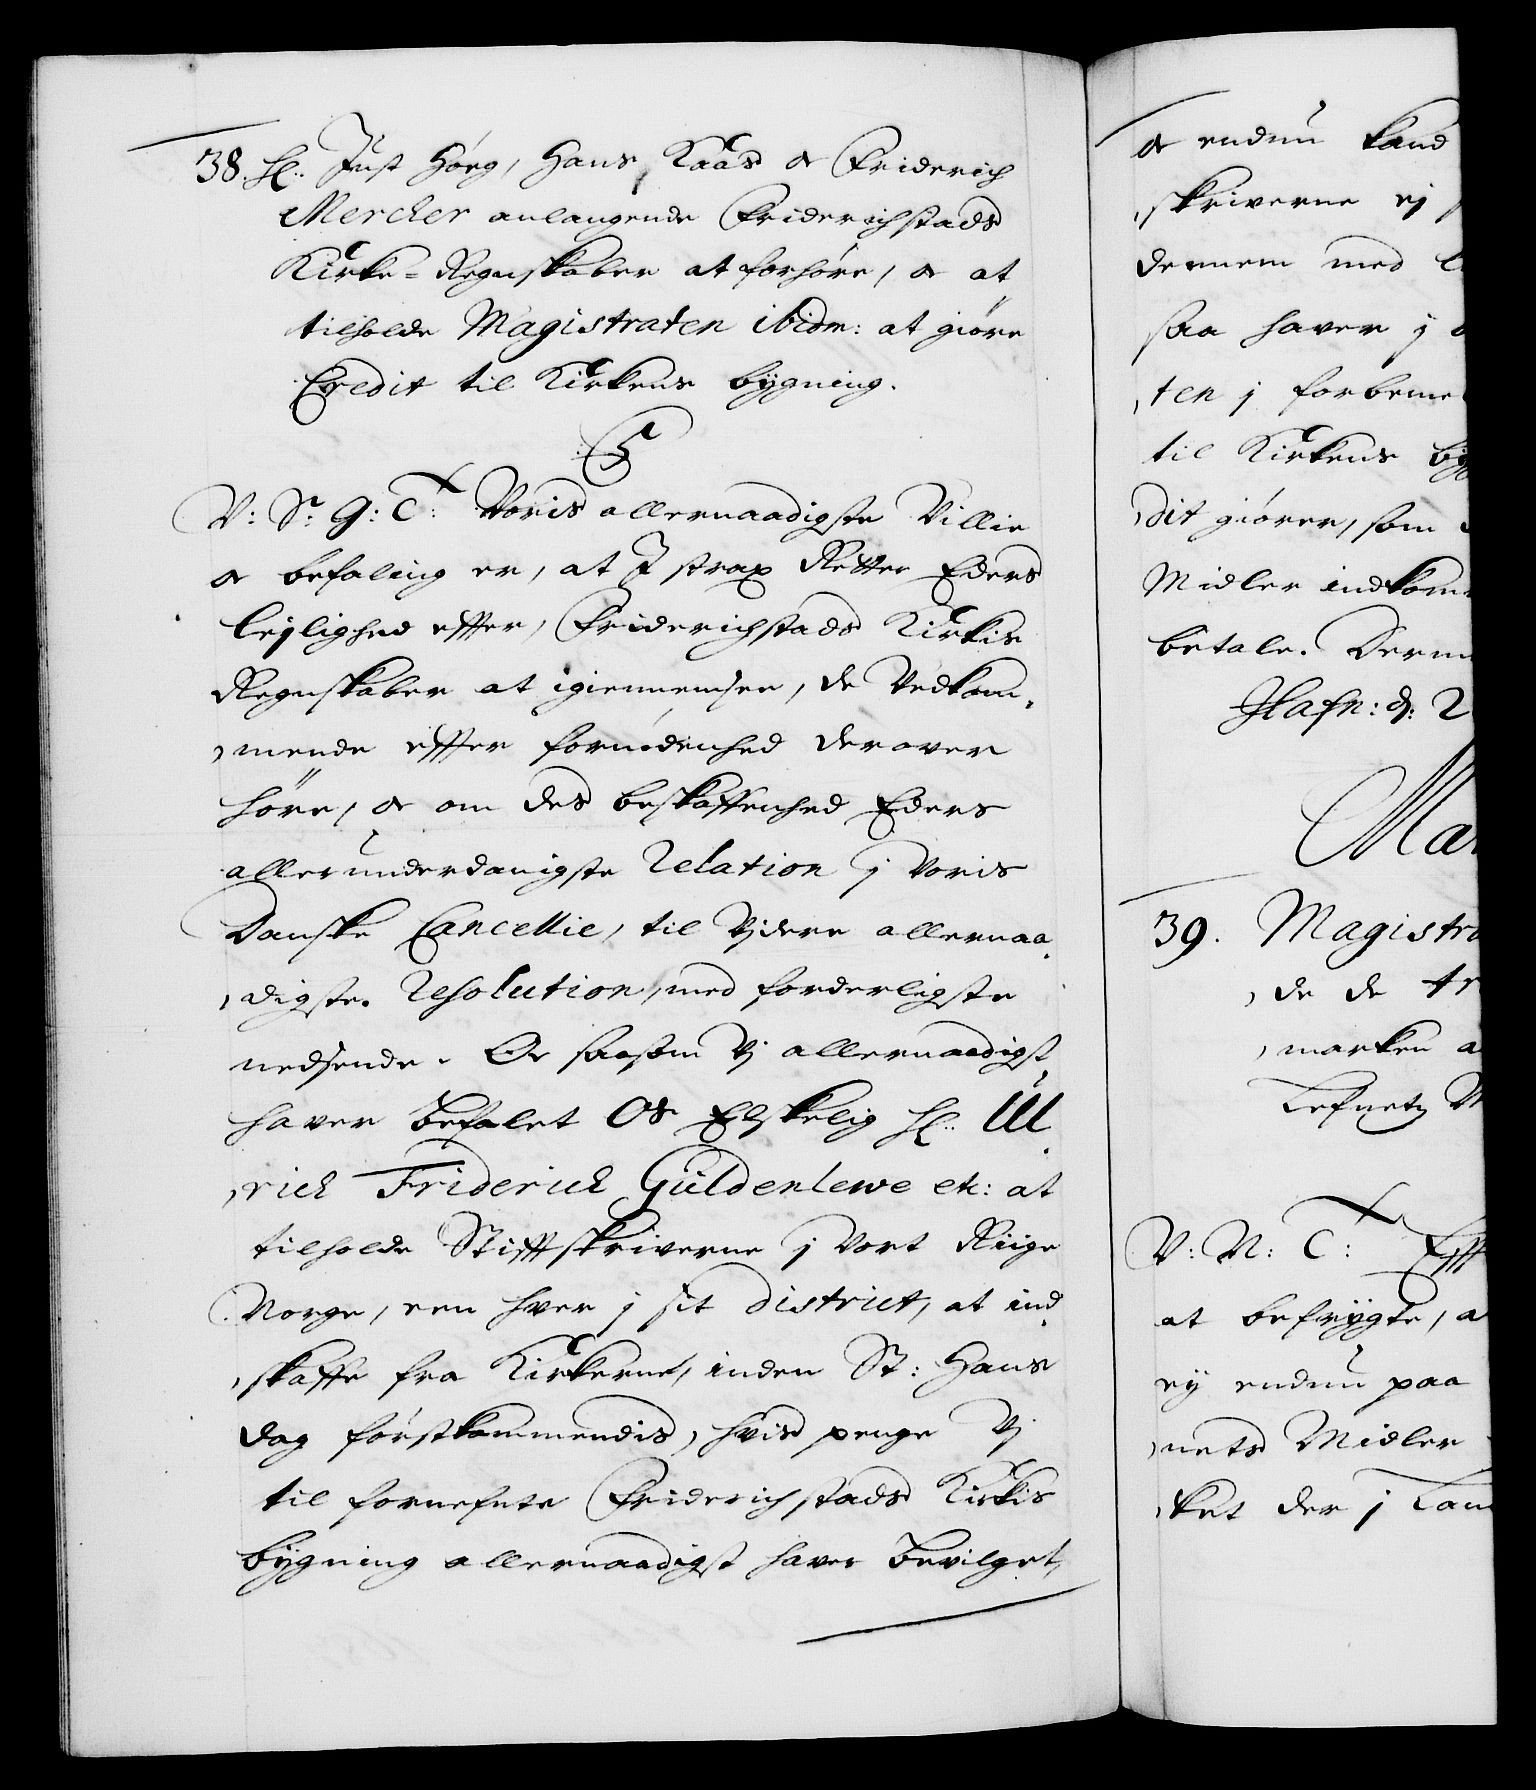 38. Hl: Just Høeg, Hans Kaas oc Friderich
Mercker anlangende Friderichstads
Kirke-Regnskaber at forhøre, oc at
tilholde Magistraten ibidm: at giøre
Credit til Kirkens bygning.
C5
V: S: G: T: Voris allernaadigste Villie
oc befaling er, at I strax Retter Eders
lejlighed effter, Friderichstads Kirkis
Regnskaber at igiennemsee, de Vedkom-
mende effter fornødenhed derover
høre, oc om des beskaffenhed Eders
allerunderdanigste Relation j Voris
Danske Cancellie, til Vjdere allernaa-
digste Resolution, med forderligste
nedsende. Oc saasom Vj allernaadigst
haver Befalet Os Elskelig Hl: Ul-
rich Friderich Güldenlewe etc: at
tilholde Stifftskriverne j Vort Riige
Norge, een hver j sit District, at ind-
skaffe fra Kirkerne, inden St: Hans
dag førstkommendis, hvis penge Vj
til fornefnte Friderichstads Kirkis
bygning allernaadigst haver Bevilget,
oc endnu kand
skriverne ej
dennem med
saa haver j
ten j forbeme
til Kirkens byg
dit giører, som
Midler indkom
betale. Derm
Hafn: d: 2
39. Magistra
de de tr
marken a
Lefnetz
V: N: T: Efft
at befrygte, a
ey endnu paa
nets Midler
ket der j Lan